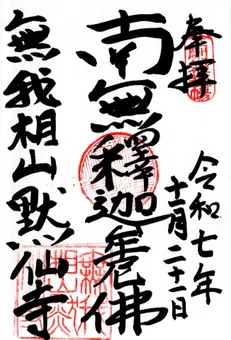 奉拝
令和七年
十二月二十一日
南無釋迦牟尼佛
無我相山默仙寺